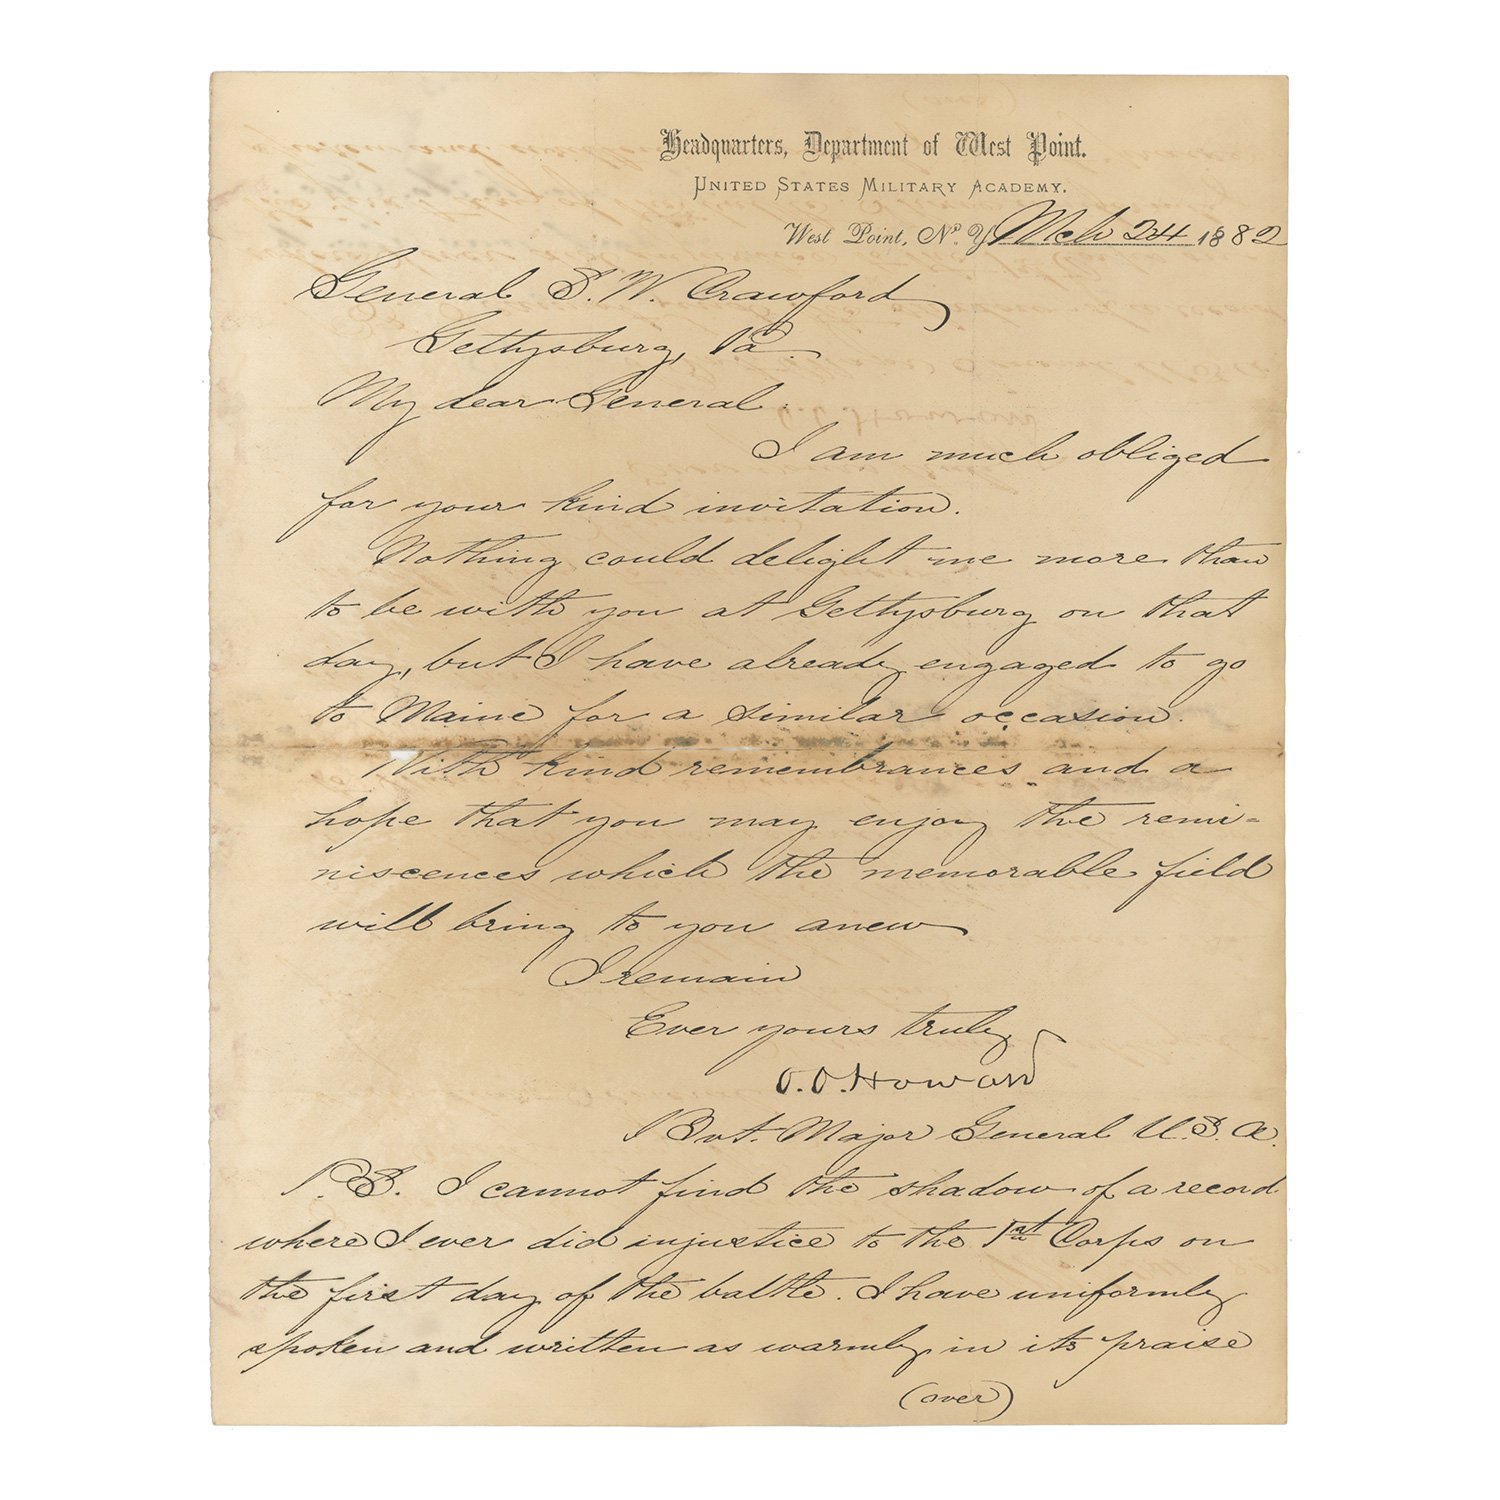 Headquarters, Department of West Point.
United States Military Academy.
West Point, N.Y. Mch 24 1882
General S. W. Crawford
Gettysburg, Pa.
My dear General:
I am much obliged
for your kind invitation.
Nothing could delight me more than
to be with you at Gettysburg on that
day, but I have already engaged to go
to Maine for a similar occasion.
With kind remembrances and a
hope that you may enjoy the remi-
niscences which the memorable field
will bring to you anew
I remain
Ever yours truly
O.O. Howard
Bvt. Major General U.S.A.
P.S. I cannot find the shadow of a record
where I ever did injustice to the 1st Corps on
the first day of the battle. I have uniformly
spoken and written as warmly in its praise
(over)